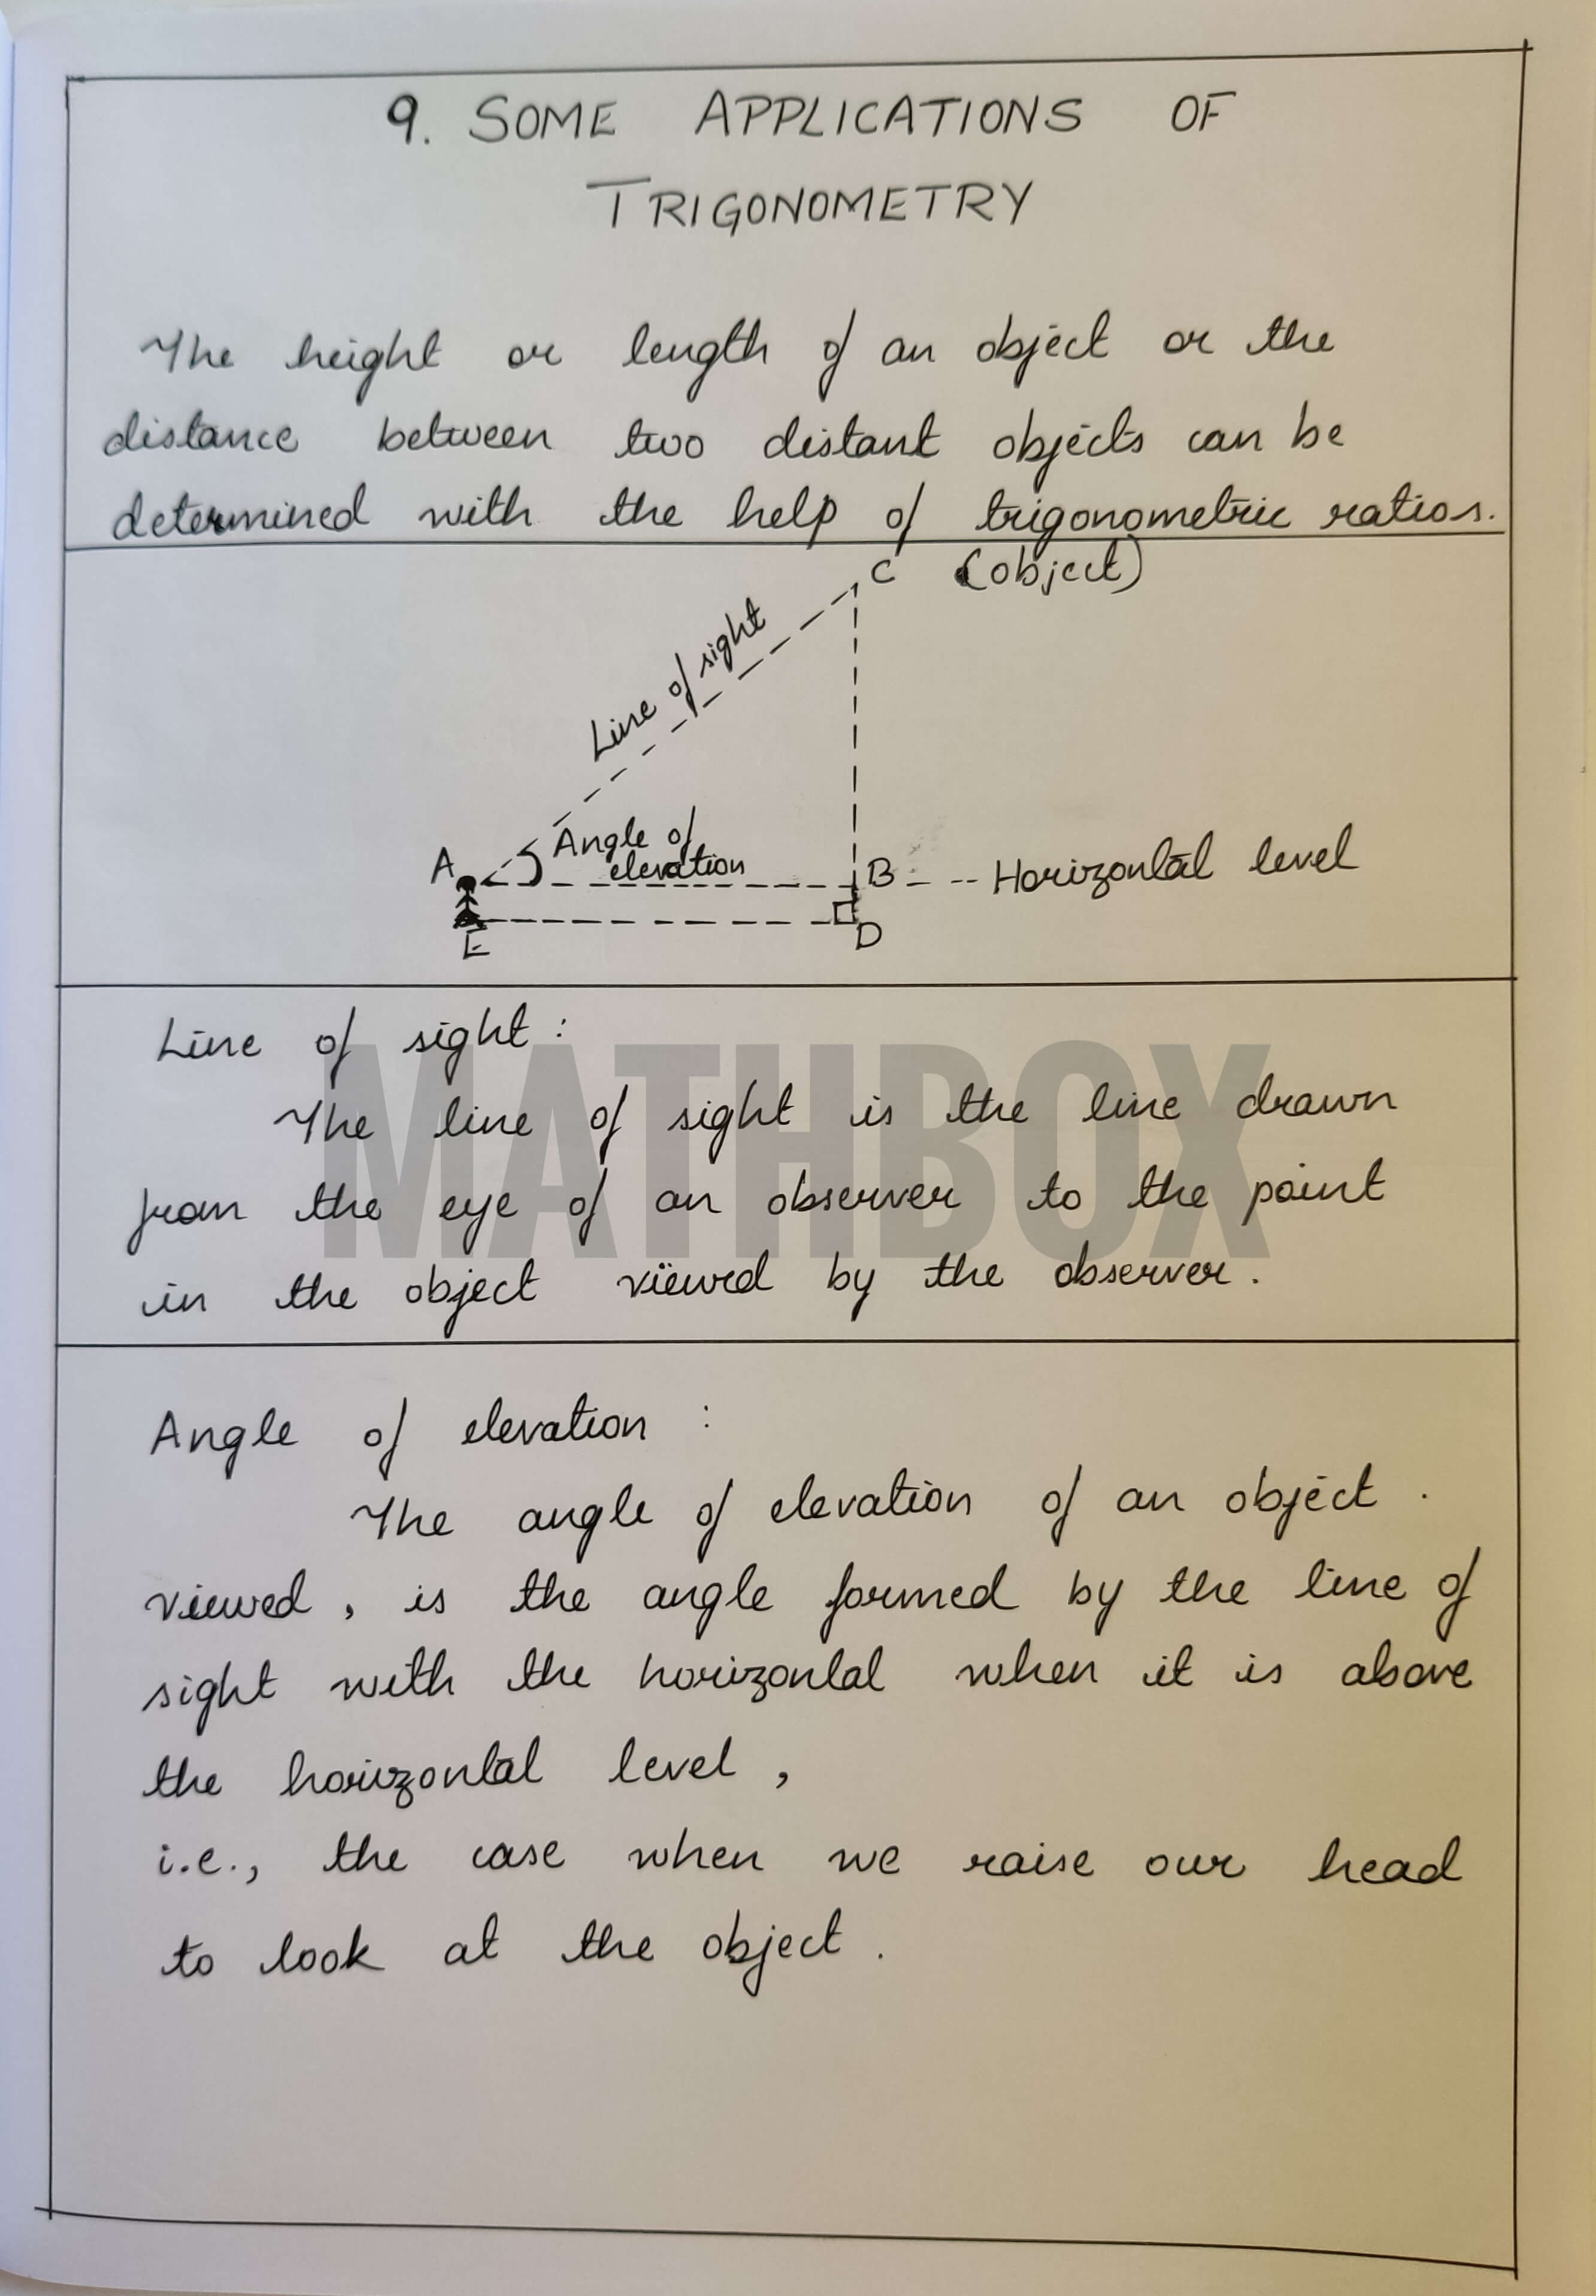 9. SOME APPLICATIONS OF
TRIGONOMETRY
The height or length of an object or the
distance between two distant objects can be
determined with the help of trigonometric ratios.
C (object)
Line of sight
A
Angle of
elevation
B
Horizontal level
E
D
MATHBOX
Line of sight :
The line of sight is the line drawn
from the eye of an observer to the point
in the object viewed by the observer.
Angle of elevation :
The angle of elevation of an object
viewed, is the angle formed by the line of
sight with the horizontal when it is above
the horizontal level,
i.e., the case when we raise our head
to look at the object.